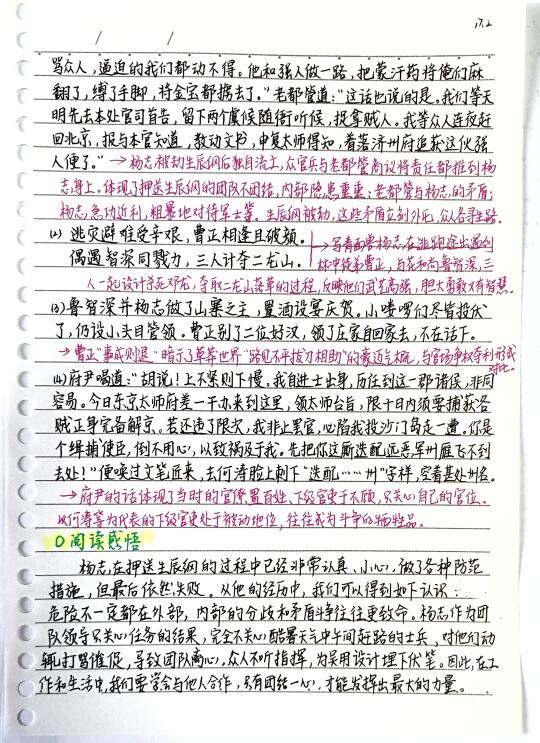 17.2
骂众人，逼迫的我们都动不得。他和强人做一路，把蒙汗药将俺们麻
翻了，缚了手脚，将金宝都掳去了。”老都管道：“这话也说的是。我们等天
明先去本处官司首告，留下两个虞候随衙听候，捉拿贼人。我等众人连夜赶
回北京，报与本官知道，教动文书，申复太师得知，着落济州府追获这伙强
人便了。”→杨志被劫生辰纲后独自流亡，众官兵与老都管商议将责任都推到杨
志身上。体现了押送生辰纲的团队不团结，内部隐患重重：老都管与杨志的矛盾；
杨志急功近利，粗暴地对待军士等。生辰纲被劫，这些矛盾立刻外化，众人各寻生路。
(2) 逃灾避难受辛艰，曹正相逢且破颜。
偶遇智深同戮力，三人计夺二龙山。
→写青面兽杨志在逃跑途中遇到
林冲徒弟曹正，与花和尚鲁智深，三
人一起设计杀死邓龙，夺取二龙山落草的过程，反映他们武艺高强，胆大勇敢又有智慧。
(3) 鲁智深并杨志做了山寨之主，置酒设宴庆贺。小喽啰们尽皆投伏
了，仍设小头目管领。曹正别了二位好汉，领了庄家自回家去，不在话下。
→曹正“事成则退”暗示了草莽世界“路见不平拔刀相助”的豪迈气概，与官场争权夺利形成
对比。
(4) 府尹喝道：“胡说！上不紧则下慢。我自进士出身，历任到这一郡诸侯，非同
容易。今日东京太师府差一干办来到这里，领太师台旨，限十日内须要捕获各
贼正身完备解京。若还违了限次，我非止罢官，必陷我投沙门岛走一遭。你是
个缉捕使臣，倒不用心，以致祸及于我。先把你这厮迭配远恶军州雁飞不到
去处！”便唤过文笔匠来，去何涛脸上刺下“迭配……州”字样，空着甚处州名。
→府尹的话体现了当时的官僚置百姓、下级官吏于不顾，只关心自己的官位。
以何涛等为代表的下级官吏处于被动地位，往往成为斗争的牺牲品。
○阅读感悟
杨志在押送生辰纲的过程中已经非常认真、小心，做了各种防范
措施，但最后依然失败。从他的经历中，我们可以得到如下认识：
危险不一定都在外部，内部的分歧和矛盾斗争往往更致命。杨志作为团
队领导只关心任务的结果，完全不关心酷暑天气中午间赶路的士兵，对他们动
辄打骂催促，导致团队离心，众人不听指挥，为吴用设计埋下伏笔。因此，在工
作和生活中，我们要学会与他人合作，只有团结一心，才能发挥出最大的力量。